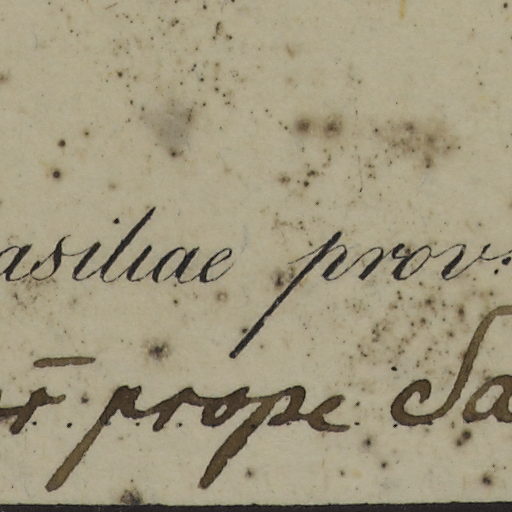 asiliae prov.
ar̄ prope Sa